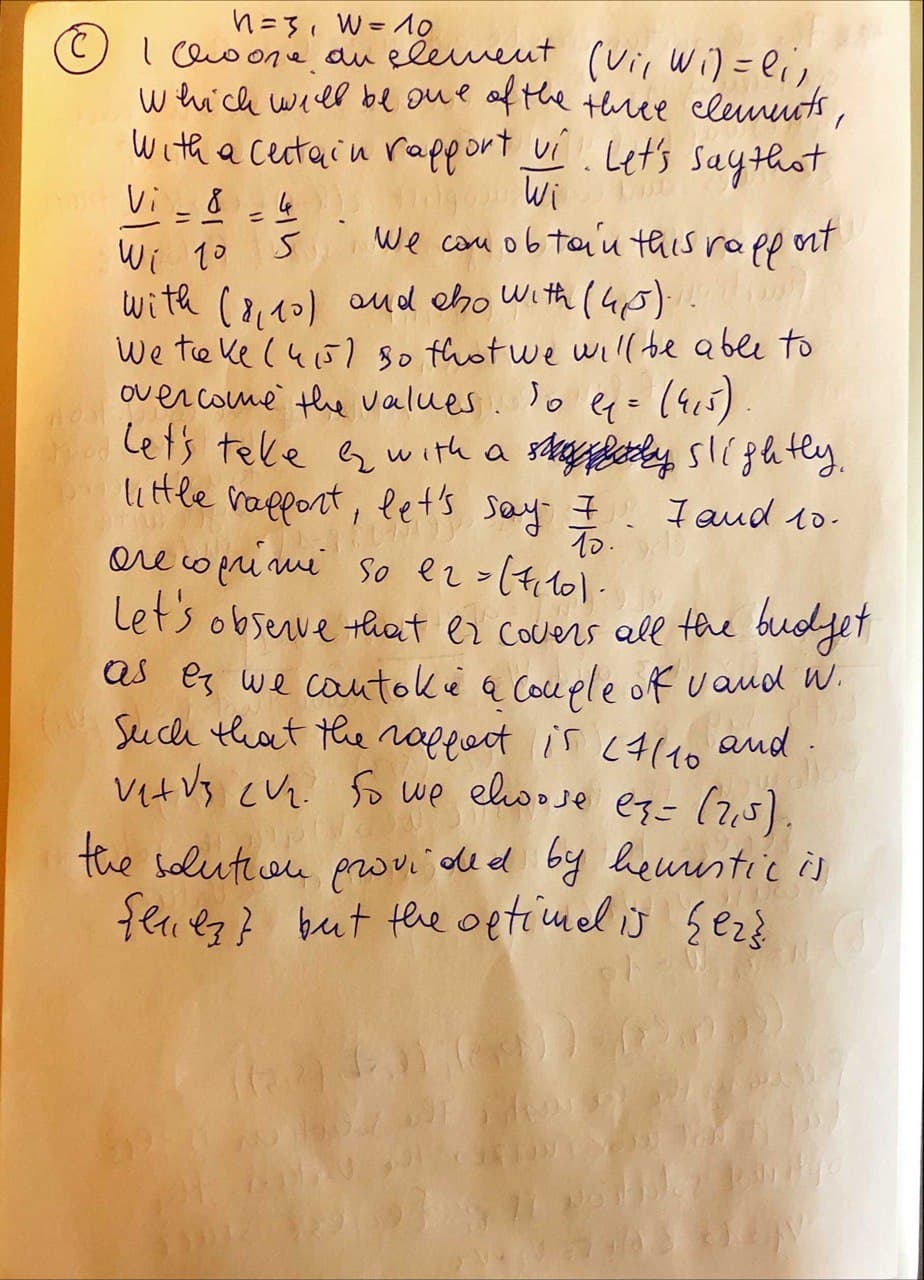 n=3, W=10
(C) I choose an element (vi, wi) = ei,
which will be one of the three elements,
with a certain rapport vi/wi. Let's say that
vi/wi = 8/10 = 4/5. We can obtain this rapport
with (8,10) and also with (4,5).
We take (4,5) so that we will be able to
overcome the values. So e1 = (4,5).
Let's take e2 with a slightly
little rapport, let's say 7/10. 7 and 10
are coprime so e2 = (7,10).
Let's observe that e2 covers all the budget
as e3 we can take a couple of v and w.
such that the rapport is <7/10 and
v1+v3 <v2. So we choose e3= (2,5).
the solution provided by heuristic is
{e1, e3} but the optimal is {e2}.